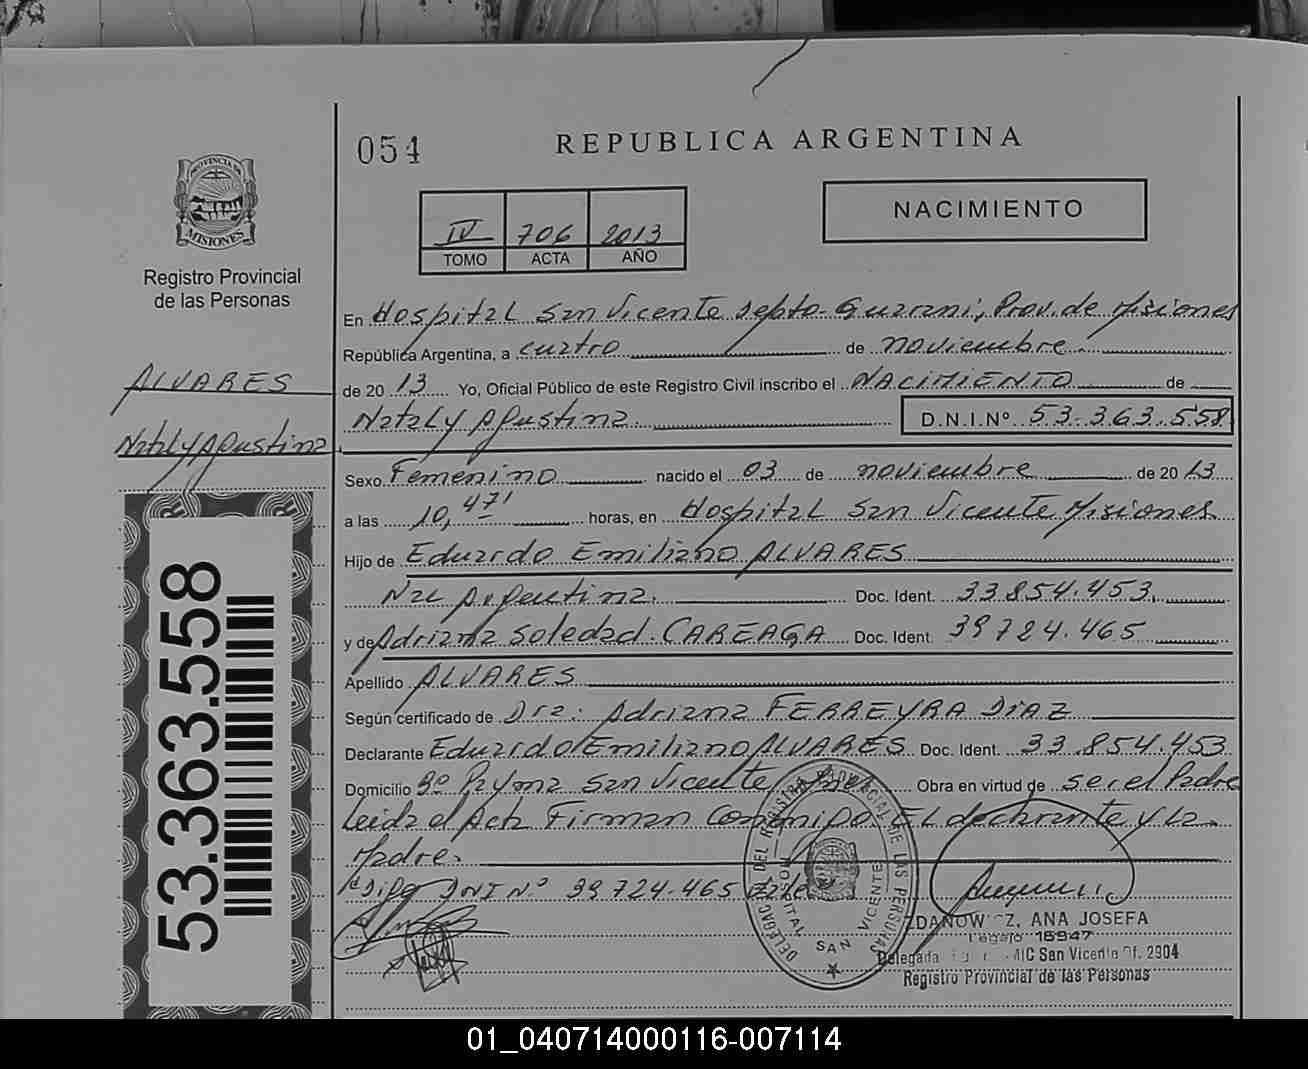 054
REPUBLICA ARGENTINA
PROVINCIA DE
MISIONES
Registro Provincial
de las Personas
IV 706 2013
TOMO ACTA AÑO
NACIMIENTO
En Hospital San Vicente Depto- Guarani, Prov. de Misiones
República Argentina, a cuatro de noviembre
de 2013 Yo, Oficial Público de este Registro Civil inscribo el NACIMIENTO de
Nataly Agustina. D.N.I.Nº 53.363.558
ALVARES
Nataly Agustina
Sexo Femenino nacido el 03 de noviembre de 2013
a las 10,47' horas, en Hospital San Vicente Misiones
Hijo de Eduardo Emiliano ALVARES
Nac Argentina. Doc. Ident. 33.854.453.
y de Adriana Soledad. CAREAGA Doc. Ident. 39724.465
Apellido ALVARES
Según certificado de Dra: Adriana FERREYRA DIAZ
Declarante Eduardo Emiliano ALVARES Doc. Ident. 33.854.453
Domicilio Bº San Vicente Obra en virtud de ser el Padre
Leida el Acta Firman Conmigo EL declarante y La
Madre.
DNI Nº 39724.465
53.363.558
DELEGAC. DEL REGISTRO PROVINCIAL DE LAS PERSONAS
HOSPITAL SAN VICENTE
ANA JOSEFA
Legajo 16947
Delegada San Vicente Of. 2904
Registro Provincial de las Personas
01_040714000116-007114